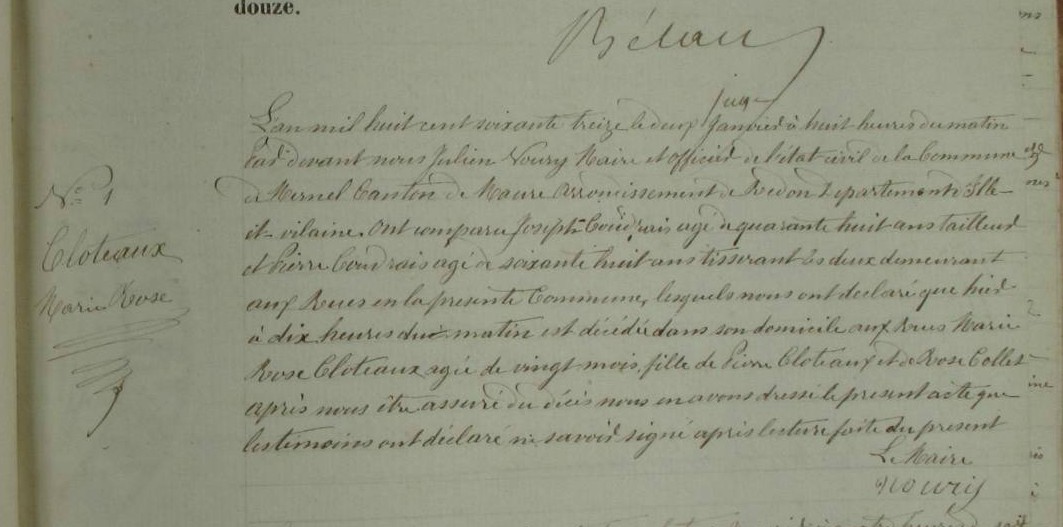 douze.
L'an mil huit cent soixante treize le deux Janvier à huit heures du matin
Par devant nous Julien Noury Maire et officier de l'état civil de la Commune
de Mernel Canton de Maure Arrondissement de Redon Département d'Ille-
et-vilaine. Ont comparu Joseph Coudrais agé de quarante huit ans tailleur
et Pierre Coudrais agé de soixante huit ans tisserant les deux demeurant
aux Rues en la présente Commune, lesquels nous ont déclaré que hier
à dix heures du matin est décédée dans son domicile aux Rues Marie
Rose Cloteaux agée de vingt mois, fille de Pierre Cloteaux et de Rose Collet
après nous être assuré du décès nous en avons dressé le présent acte que
les temoins ont déclaré ne savoir signé après lecture faite du present
Le Maire
Noury
N° 1
Cloteaux
Marie Rose